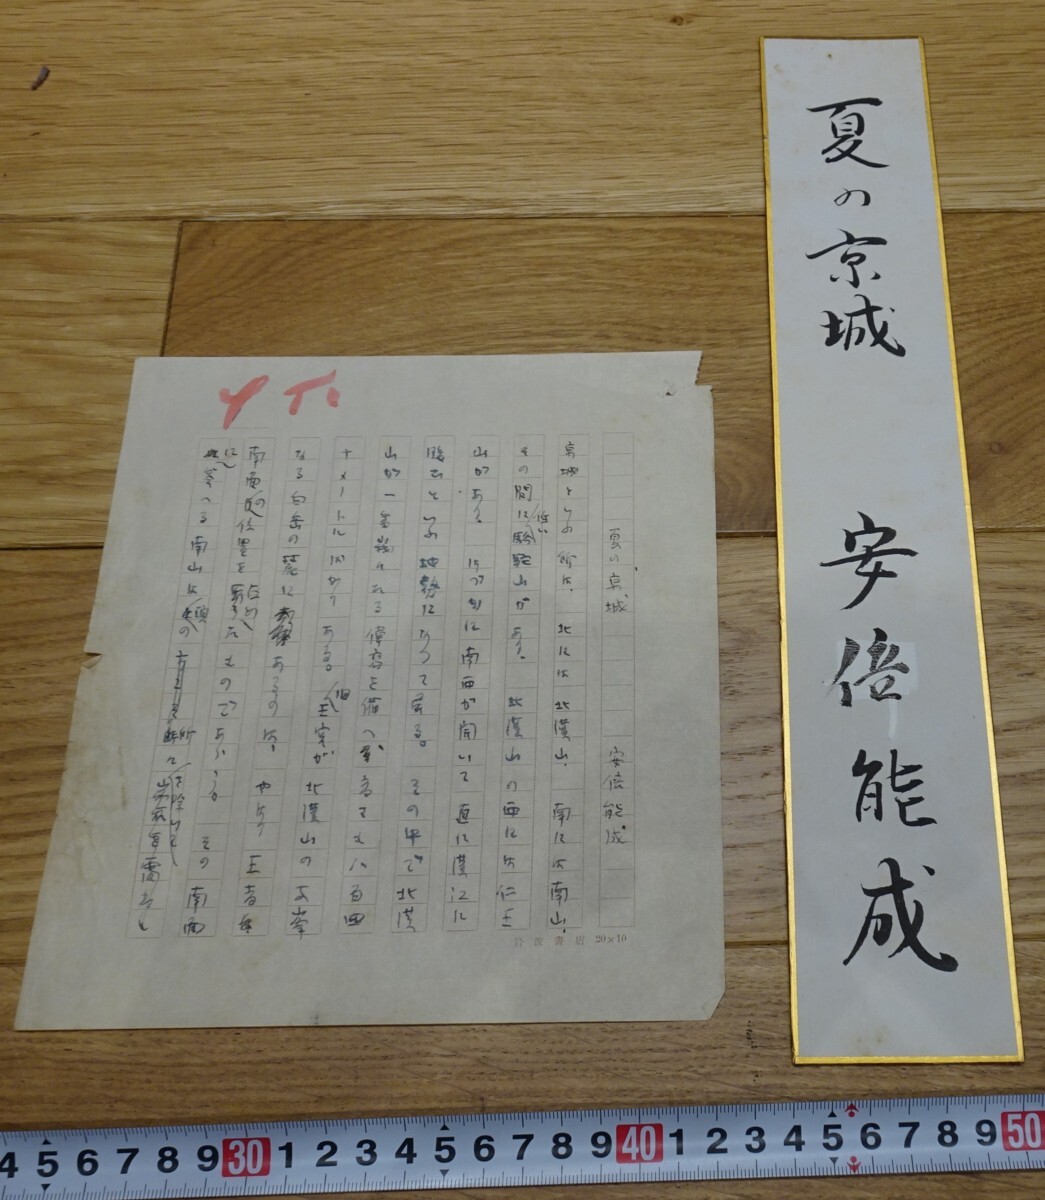 夏の京城 安倍能成
夏の京城 安倍能成
京城といふ所は、北には北漢山、南には南山、
その間に低い駱駝山があり、北漢山の西には仁王
山があり、わづかに南西が開いて直に漢江に
臨むといふ地勢になつて居る。その中で北漢
山が一番嵬々たる偉容を備へ、高さも八百四
十メートルばかりある。旧王宮が北漢山の支峯
なる白岳の麓にあるのは、やはり王者
南面の位置を占めたものであらう。その南面
に答へる南山は頂の
を除けば
岩波書店 20×10
4 5 6 7 8 9 30 1 2 3 4 5 6 7 8 9 40 1 2 3 4 5 6 7 8 9 50